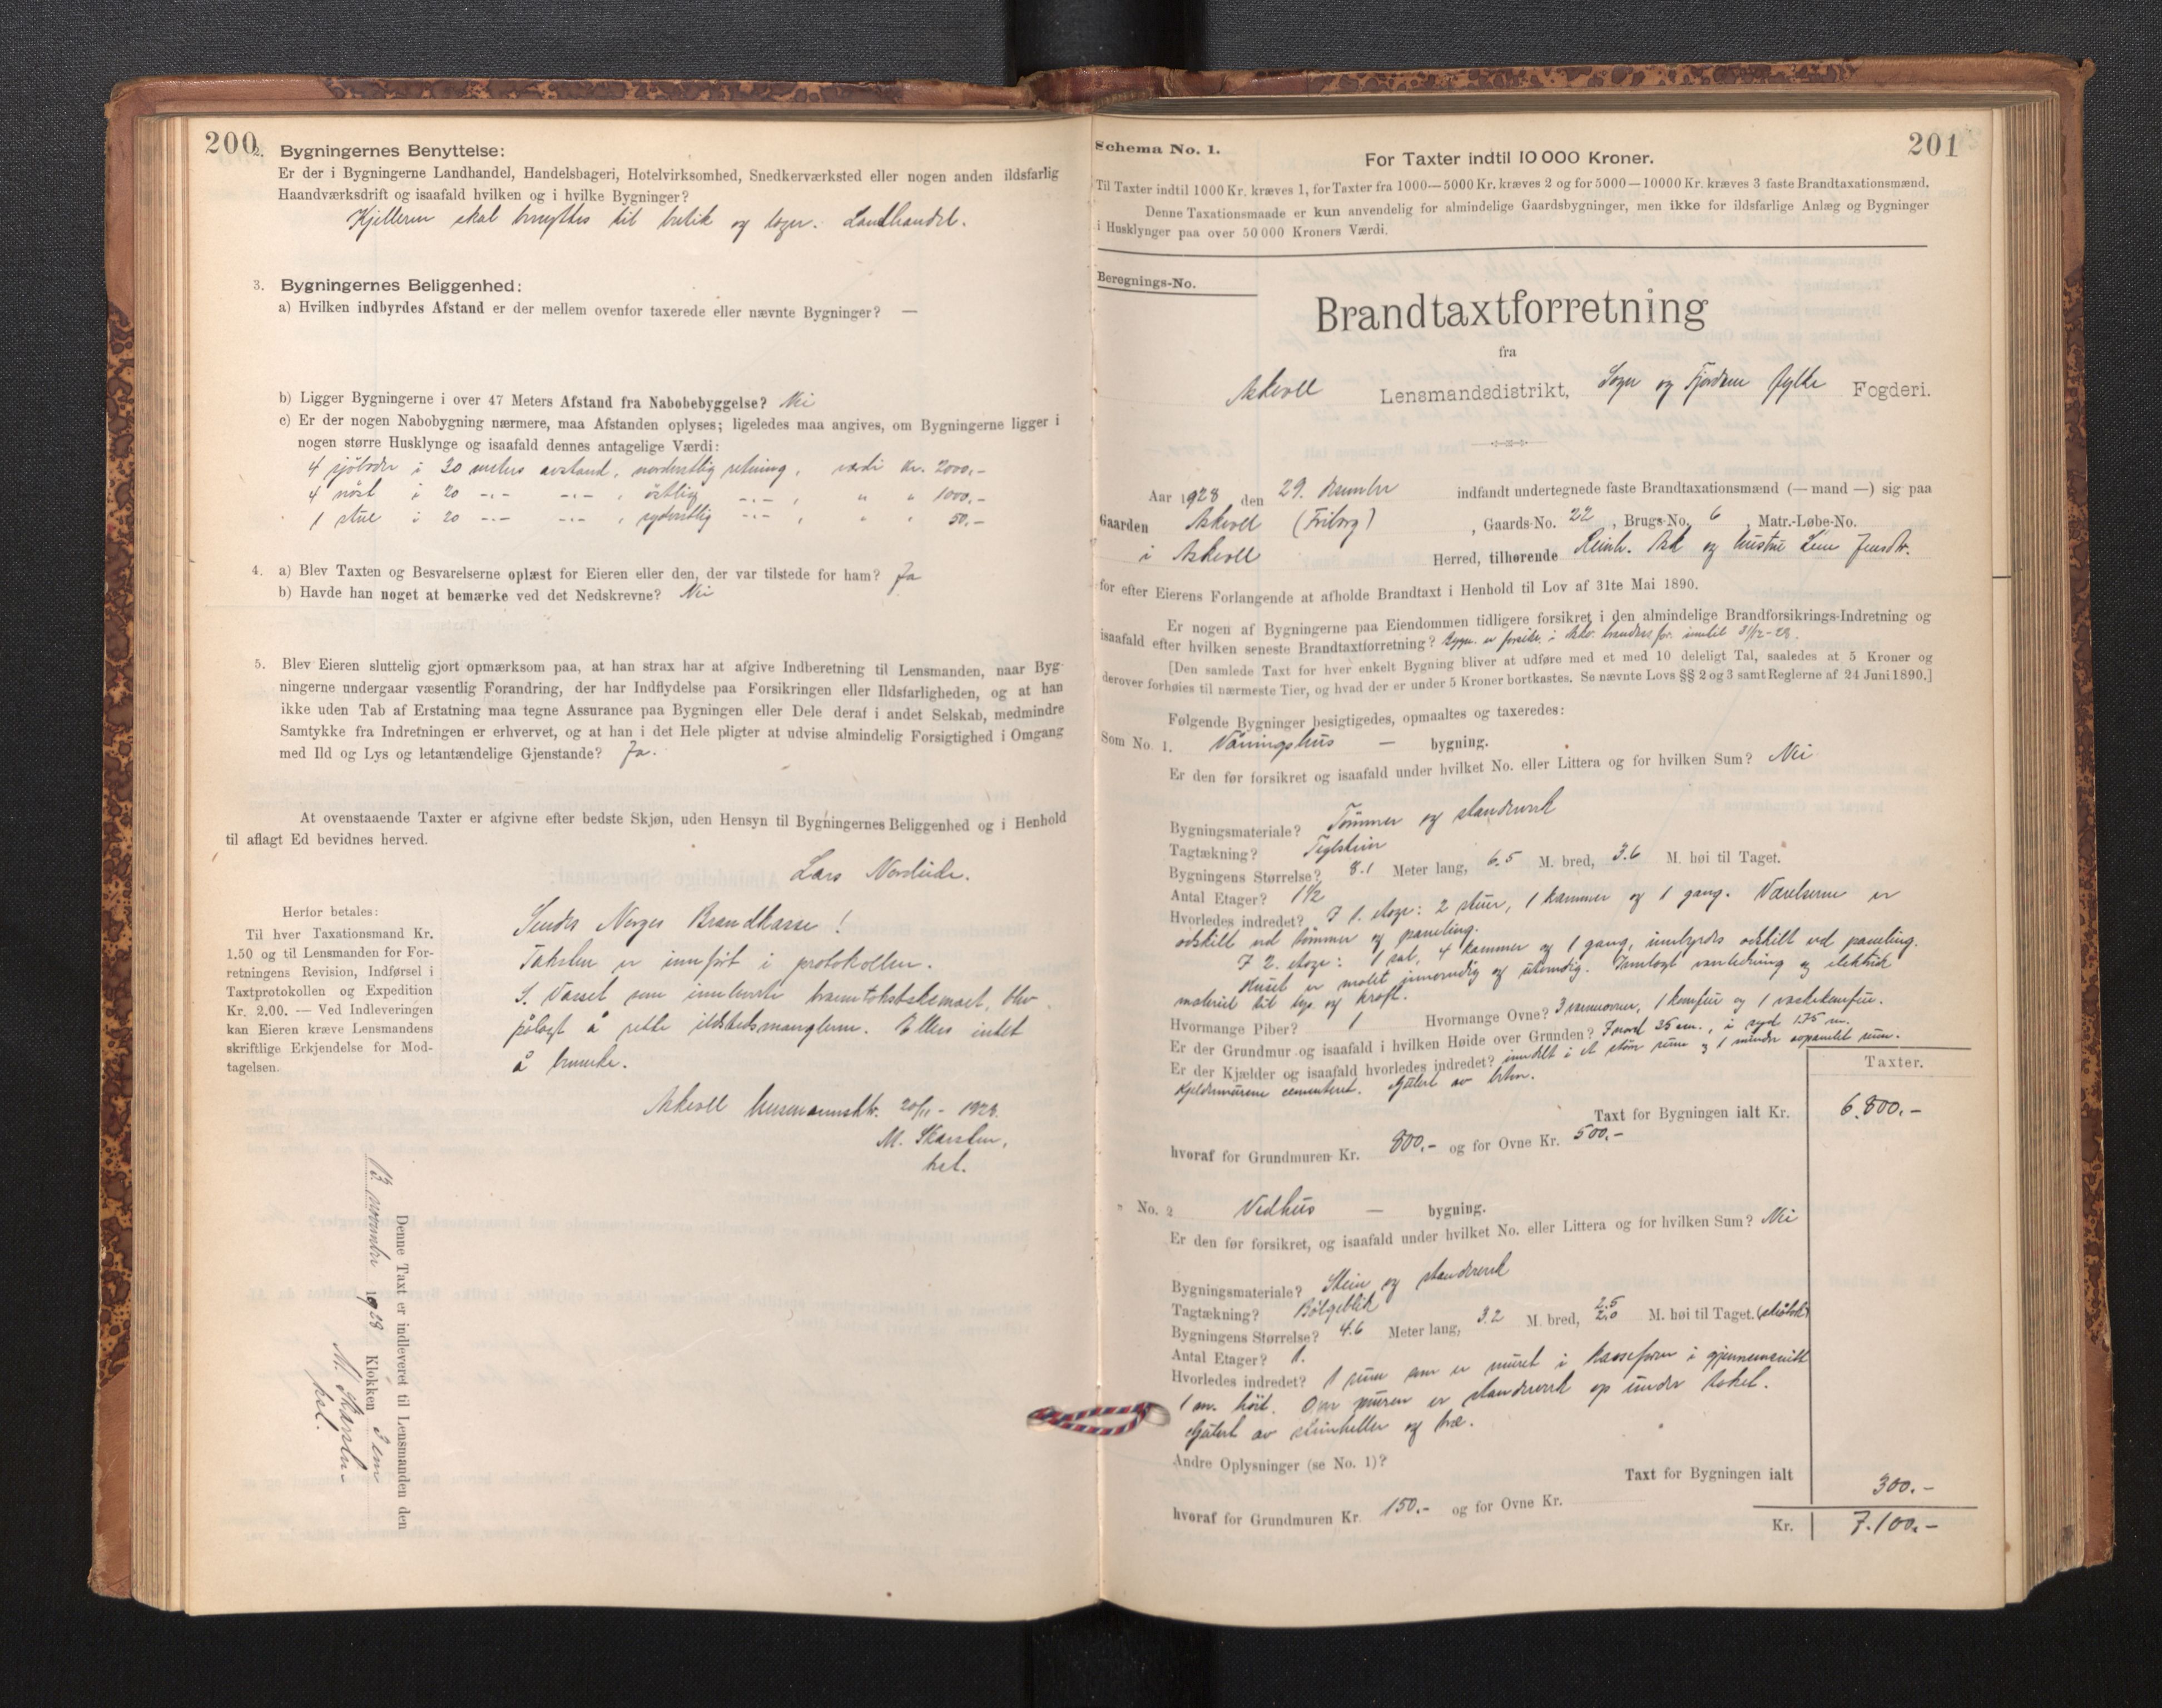 200
2. Bygningernes Benyttelse:
Er der i Bygningerne Landhandel, Handelsbageri, Hotelvirksomhed, Snedkerværksted eller nogen anden ildsfarlig
Haandværksdrift og isaafald hvilken og i hvilke Bygninger?
Kjelleren skal benyttes til butik og lager. Landhandel.
3. Bygningernes Beliggenhed:
a) Hvilken indbyrdes Afstand er der mellem ovenfor taxerede eller nævnte Bygninger? —
b) Ligger Bygningerne i over 47 Meters Afstand fra Nabobebyggelse? Nei
c) Er der nogen Nabobygning nærmere, maa Afstanden oplyses; ligeledes maa angives, om Bygningerne ligger i
nogen større Husklynge og isaafald dennes antagelige Værdi:
4 sjöboder i 20 meters avstand, nordvestlig retning, værdi kr. 2000,-
4 nöst i 20 -.- -.-, östlig -.-, " " 1000,-
1 stue i 20 -.- -.-, sydvestlig -.-, " " 50,-
4. a) Blev Taxten og Besvarelserne oplæst for Eieren eller den, der var tilstede for ham? Ja
b) Havde han noget at bemærke ved det Nedskrevne? Nei
5. Blev Eieren sluttelig gjort opmærksom paa, at han strax har at afgive Indberetning til Lensmanden, naar Byg-
ningerne undergaar væsentlig Forandring, der har Indflydelse paa Forsikringen eller Ildsfarligheden, og at han
ikke uden Tab af Erstatning maa tegne Assurance paa Bygningen eller Dele deraf i andet Selskab, medmindre
Samtykke fra Indretningen er erhvervet, og at han i det Hele pligter at udvise almindelig Forsigtighed i Omgang
med Ild og Lys og letantændelige Gjenstande? Ja.
At ovenstaaende Taxter er afgivne efter bedste Skjøn, uden Hensyn til Bygningernes Beliggenhed og i Henhold
til aflagt Ed bevidnes herved.
Lars Nordeide.
Herfor betales:
Til hver Taxationsmand Kr.
1.50 og til Lensmanden for For-
retningens Revision, Indførsel i
Taxtprotokollen og Expedition
Kr. 2.00. — Ved Indleveringen
kan Eieren kræve Lensmandens
skriftlige Erkjendelse for Mod-
tagelsen.
Sendes Norges Brandkasse!
Taksten er innfört i protokollen.
S. Vasset som innleverte branntakstskemaet, blev
pålagt å rette ildstedsmanglerne. Ellers intet
å bemerke.
Askvoll lensmannsktr. 20/11 - 1928.
M. Skarsten,
kst.
Denne Taxt er indleveret til Lensmanden den
13 november 1928 Klokken 3 em
M. Skarsten
kst.
201
Schema No. 1.
For Taxter indtil 10 000 Kroner.
Til Taxter indtil 1000 Kr. kræves 1, for Taxter fra 1000—5000 Kr. kræves 2 og for 5000—10000 Kr. kræves 3 faste Brandtaxationsmænd.
Denne Taxationsmaade er kun anvendelig for almindelige Gaardsbygninger, men ikke for ildsfarlige Anlæg og Bygninger
i Husklynger paa over 50 000 Kroners Værdi.
Beregnings-No.
Brandtaxtforretning
fra
Askvoll Lensmandsdistrikt, Sogn og Fjordane fylke Fogderi.
Aar 1928 den 29. desember indfandt undertegnede faste Brandtaxationsmænd (— mand —) sig paa
Gaarden Askvoll (Friborg), Gaards-No. 22, Brugs-No. 6, Matr.-Løbe-No.
i Askvoll Herred, tilhørende Reinh. Ask og hustru Lene Jensdtr.
for efter Eierens Forlangende at afholde Brandtaxt i Henhold til Lov af 31te Mai 1890.
Er nogen af Bygningerne paa Eiendommen tidligere forsikret i den almindelige Brandforsikrings-Indretning og
isaafald efter hvilken seneste Brandtaxtforretning? Bygn. er forsikr. i Askv. brandass.for. inntil 31/12-28.
[Den samlede Taxt for hver enkelt Bygning bliver at udføre med et med 10 deleligt Tal, saaledes at 5 Kroner og
derover forhøies til nærmeste Tier, og hvad der er under 5 Kroner bortkastes. Se nævnte Lovs §§ 2 og 3 samt Reglerne af 24 Juni 1890.]
Følgende Bygninger besigtigedes, opmaaltes og taxeredes:
Som No. 1. Våningshus — bygning.
Er den før forsikret og isaafald under hvilket No. eller Littera og for hvilken Sum? Nei
Bygningsmateriale? Tömmer og standverk
Tagtækning? Teglstein
Bygningens Størrelse? 8.1 Meter lang, 6.5 M. bred, 3.6 M. høi til Taget.
Antal Etager? 1 1/2
Hvorledes indredet? I 1. etage: 2 stuer, 1 kammer og 1 gang. Værelserne er
adskilt ved tömmer og paneling.
I 2. etage: 1 sal, 4 kammer og 1 gang, innbyrdes adskilt ved paneling.
Huset er malet innvendig og utvendig. Innlagt vannledning og elektrisk
materiel til lys og kraft.
Hvormange Piber? 1 Hvormange Ovne? 3 vannovner, 1 komfür og 1 vaskekomfür.
Er der Grundmur og isaafald i hvilken Høide over Grunden? I nord 25 cm., i syd 175 cm.
Er der Kjælder og isaafald hvorledes indredet? inndelt i et större rum og 1 mindre avpanelet rum.
Kjeldermurene cementeret. Gulvet av beton.
Taxter.
Taxt for Bygningen ialt Kr. 6.800,-
hvoraf for Grundmuren Kr. 800,- og for Ovne Kr. 500,-
No. 2 Vedhus — bygning.
Er den før forsikret, og isaafald under hvilket No. eller Littera og for hvilken Sum? Nei
Bygningsmateriale? Stein og standverk
Tagtækning? Bölgeblik
Bygningens Størrelse? 4.6 Meter lang, 3.2 M. bred, 2.5 2.0 M. høi til Taget. (skråtak)
Antal Etager? 1.
Hvorledes indredet? 1 rum som er muret i kasseform i gjennemsnitt
1 m. höit. Over muren er standverk op under taket.
Gulvet av steinheller og træ.
Andre Oplysninger (se No. 1)?
Taxt for Bygningen ialt 300.-
hvoraf for Grundmuren Kr. 150.- og for Ovne Kr.
Kr. 7.100,-